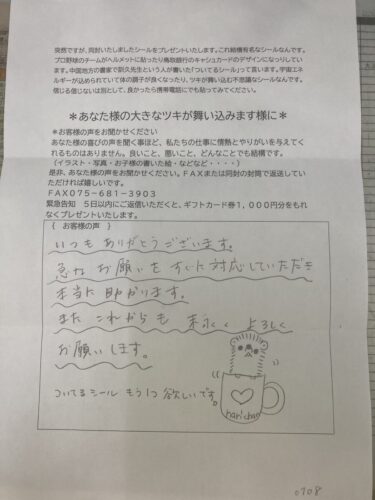 突然ですが、同封いたしましたシールをプレゼントいたします。これ結構有名なシールなんです。
プロ野球のチームがヘルメットに貼ったり鳥取銀行のキャシュカードのデザインになりっしてい
ます。中国地方の書家で釈久先生という人が書いた「ついてるシール」って言います。宇宙エネル
ギーが込められていて体の調子が良くなったり、ツキが舞い込む不思議なシールなんです。
信じる信じないは別として、良かったら携帯電話にでも貼ってみてください。
*あなた様の大きなツキが舞い込みます様に*
*お客様の声をお聞かせください
あなた様の喜びの声を聞く事ほど、私たちの仕事に情熱とやりがいを与えてく
れるものはありません。良いこと、悪いこと、どんなことでも結構です。
(イラスト・写真・お子様の書いた絵・などなど・・・・)
是非、あなた様の声をお聞かせください。FAXまたは同封の封筒で返送してい
ただければ嬉しいです。
FAX075-681-3903
緊急告知 5日以内にご返信いただくと、ギフトカード券1,000円分をもれ
なくプレゼントいたします。
{ お客様の声 }
いつも ありがとうございます。
急な お願いを すぐに対応していただき
本当に 助かります。
また これからも 末永く よろしく
お願いします。
ついてるシール もう1つ 欲しいです。
harichan
0708